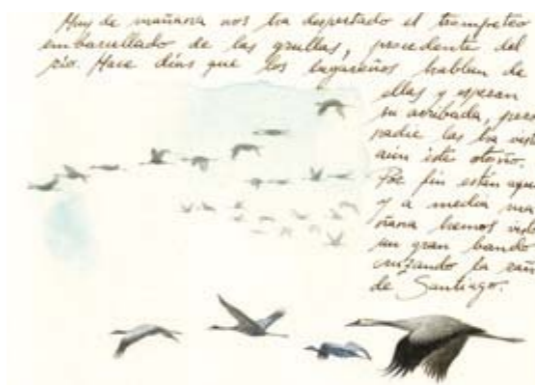 Muy de mañana nos ha despertado el trompeteo
embarullado de las grullas, procedente del
río. Hace días que los lugareños hablan de
ellas y esperan
su arribada, pero
nadie las ha visto
aún este otoño.
Por fin están aquí
y a media ma
ñana hemos visto
un gran bando
cruzando la raña
de Santiago.